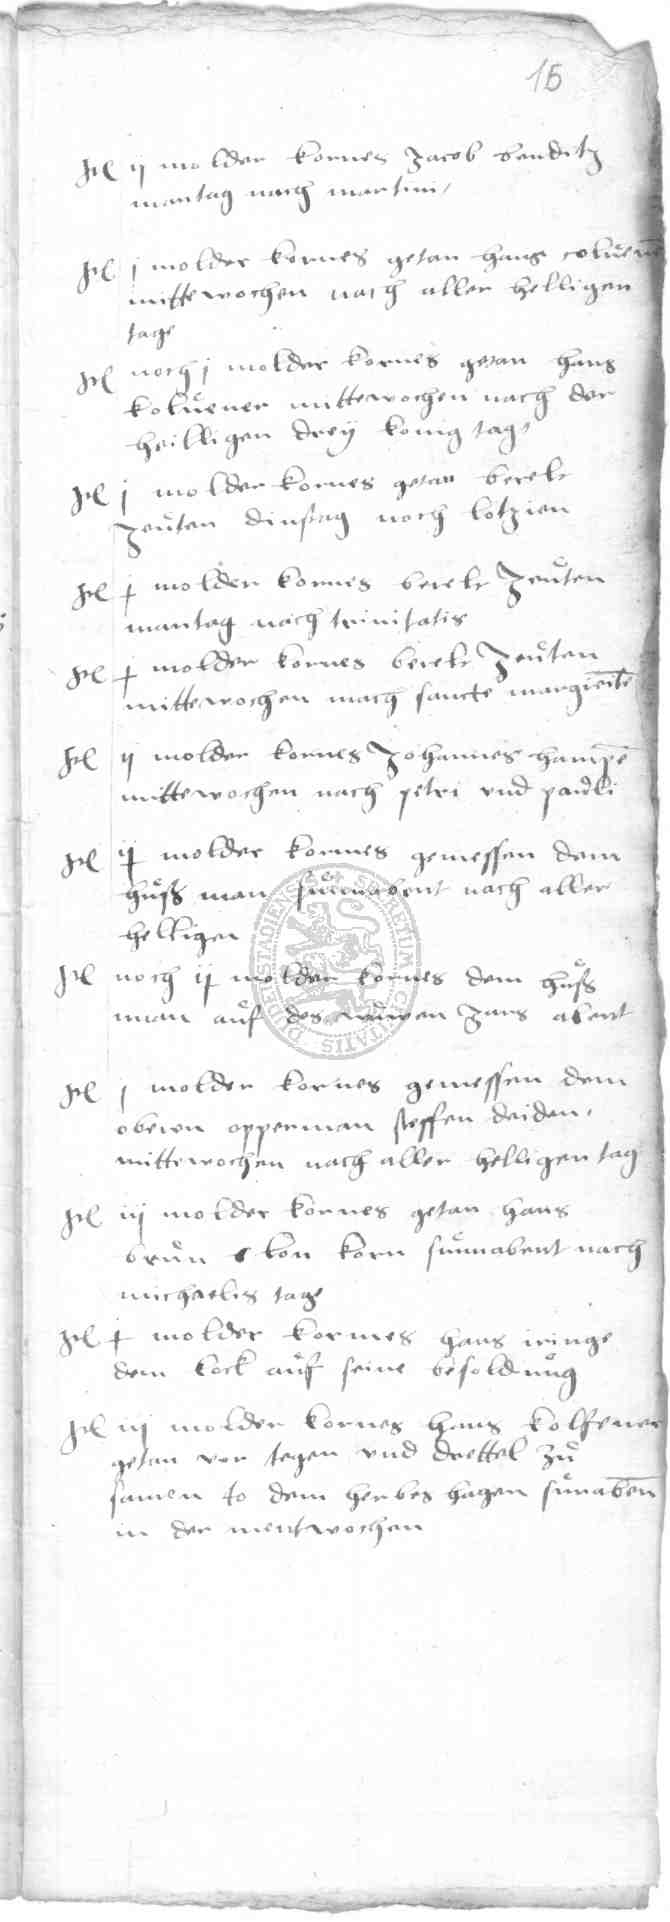 15
Jtem ij molder kornes Jacob benditz
mantag nach martini
Jtem j molder kornes getan hans coluener
mittewochen nach aller helligen
tage
Jtem noch j molder kornes getan hans
koluener mittewochen nach der
heilligen dreij konig tage
Jtem j molder kornes getan berelt
Zeuten dinstag noch lotzien
Jtem j molder kornes berelt Zeuten
mantag nach trinitatis
Jtem j molder kornes berelt Zeuten
mittewochen nach sancte margreite
Jtem ij molder kornes Johannes hampe
mittewochen nach petri vnd pauli
Jtem ij molder kornes gemessen dem
huß man sunnabent nach aller
helligen
Jtem noch ij molder kornes dem huß
man auf des nuwen Jars abent
Jtem j molder kornes gemessen dem
obern opperman steffen deiden
mittewochen nach aller helligen tag
Jtem iij molder kornes getan hans
brun lon korn sunnabent nach
michaelis tage
Jtem j molder kornes hans iringe
dem kock auf seine besoldung
Jtem iij molder kornes hans kolfener
getan vor tegen vnd drettel zu
samen to dem herbes hagen sunaben
in der mentwochen
SECRETUM CIVITATIS DUDERSTADIENSIS